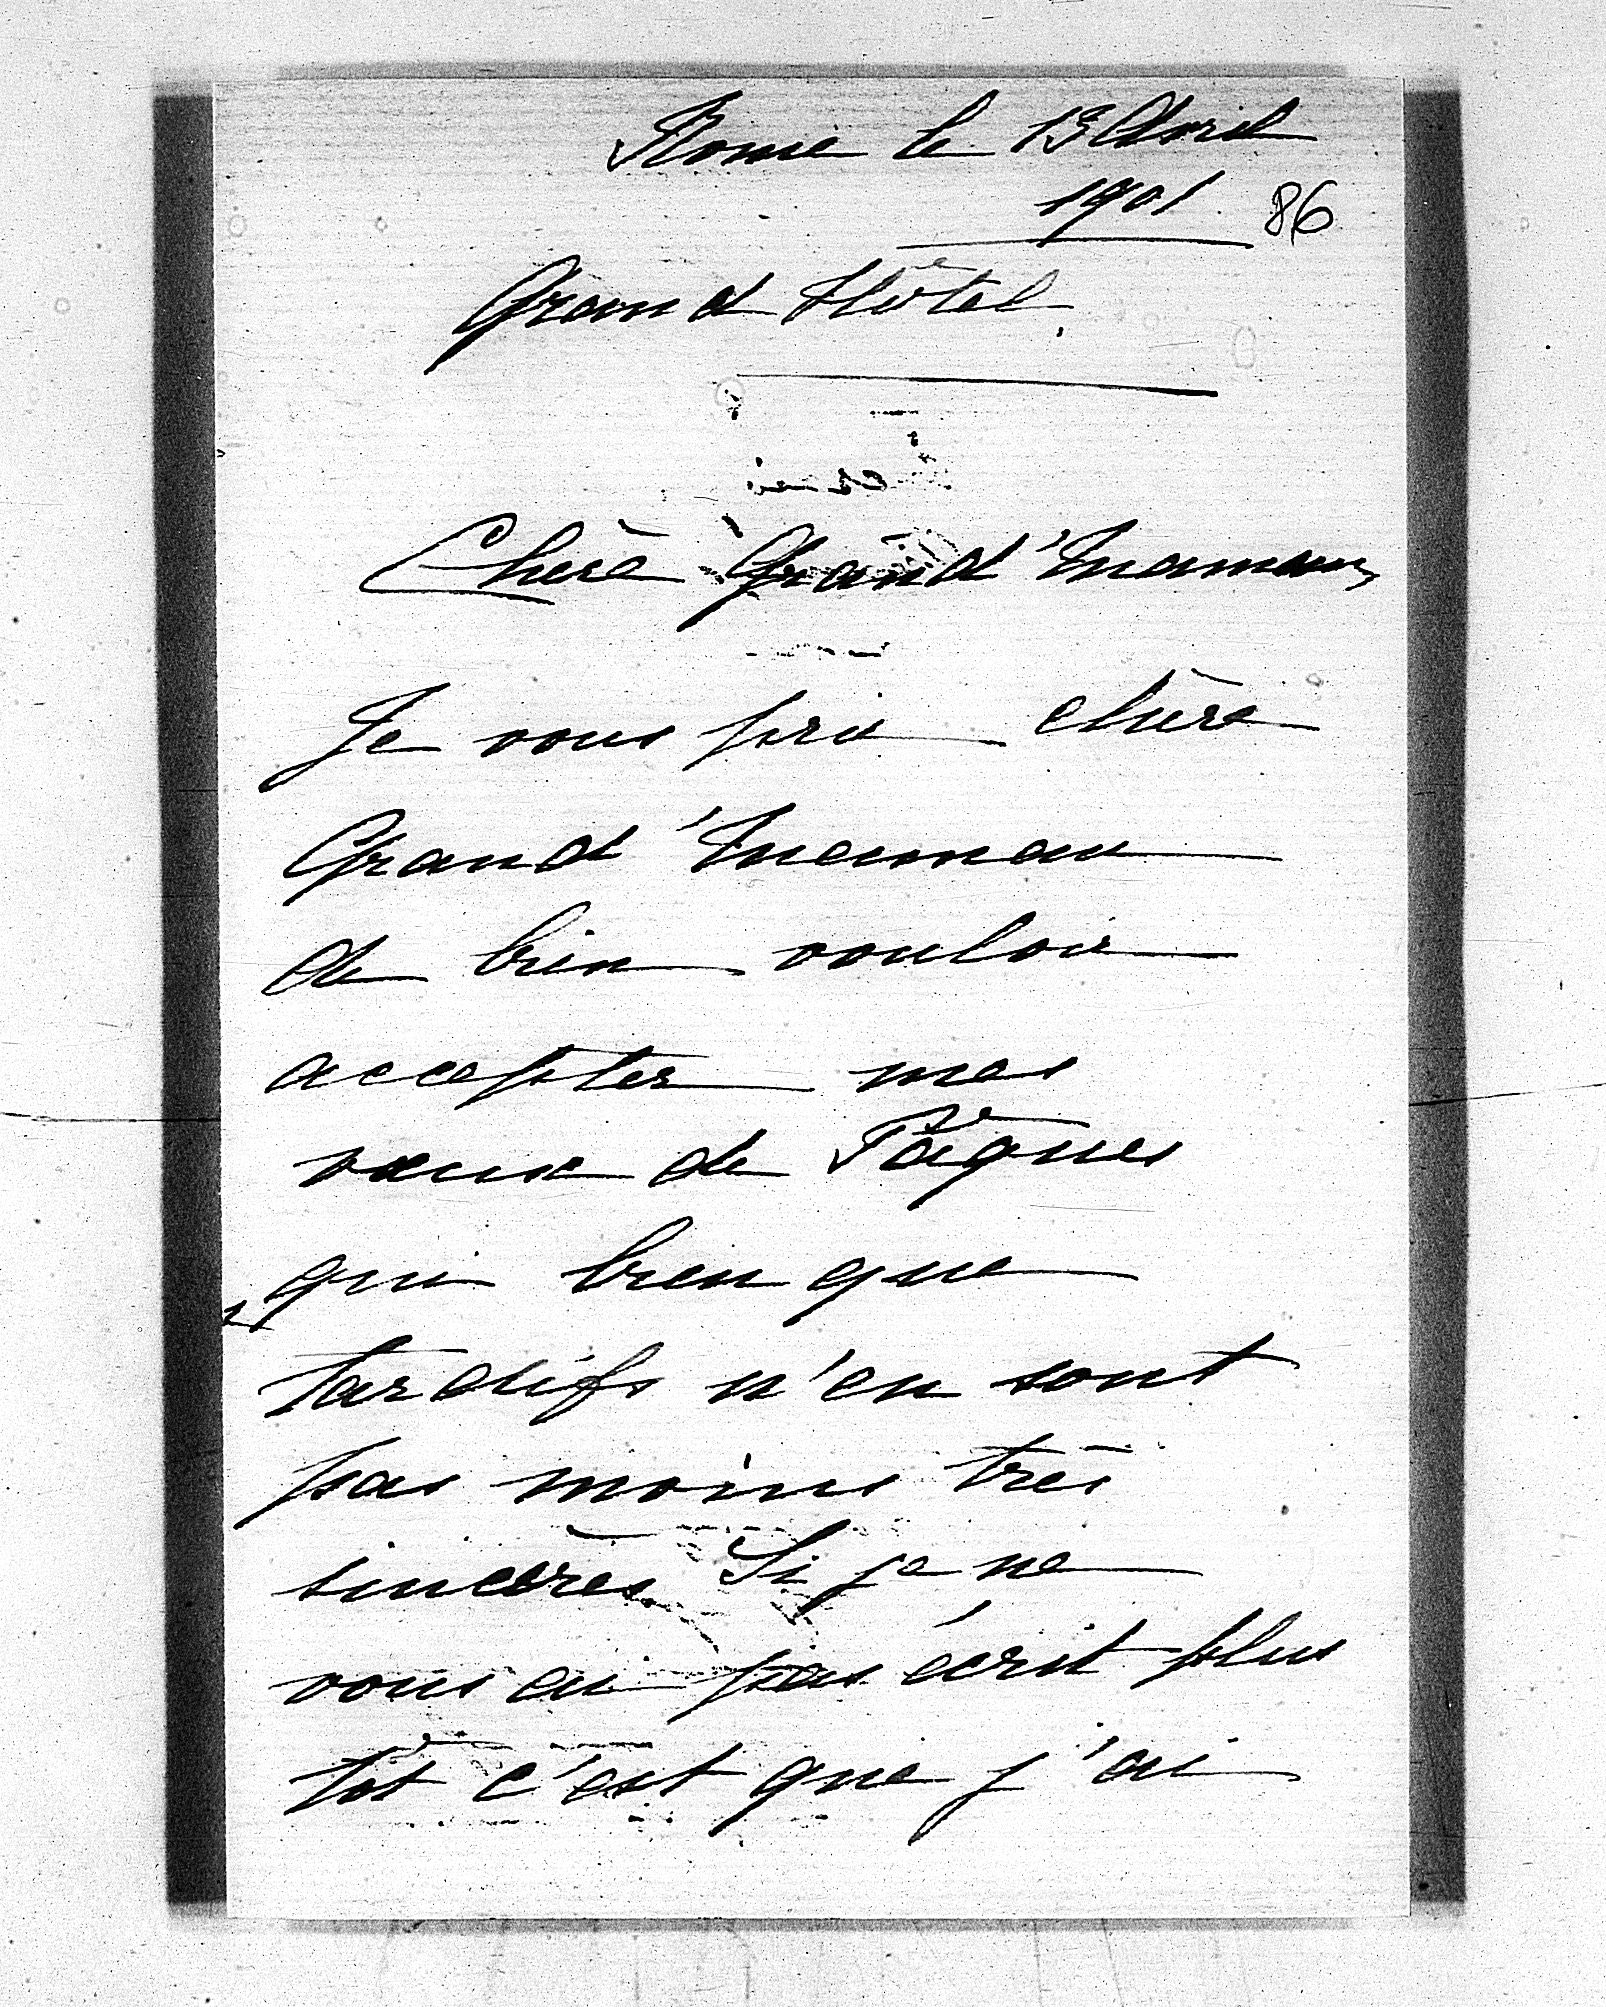 Rome le 13 Avril
1901 86
Grand Hôtel.
Chère Grand'maman,
Je vous prie chère
Grand'maman
de bien vouloir
accepter mes
vœux de Pâques
qui bien que
tardifs n'en sont
pas moins très
sincères. Si je ne
vous ai pas écrit plus
tôt c'est que j'ai